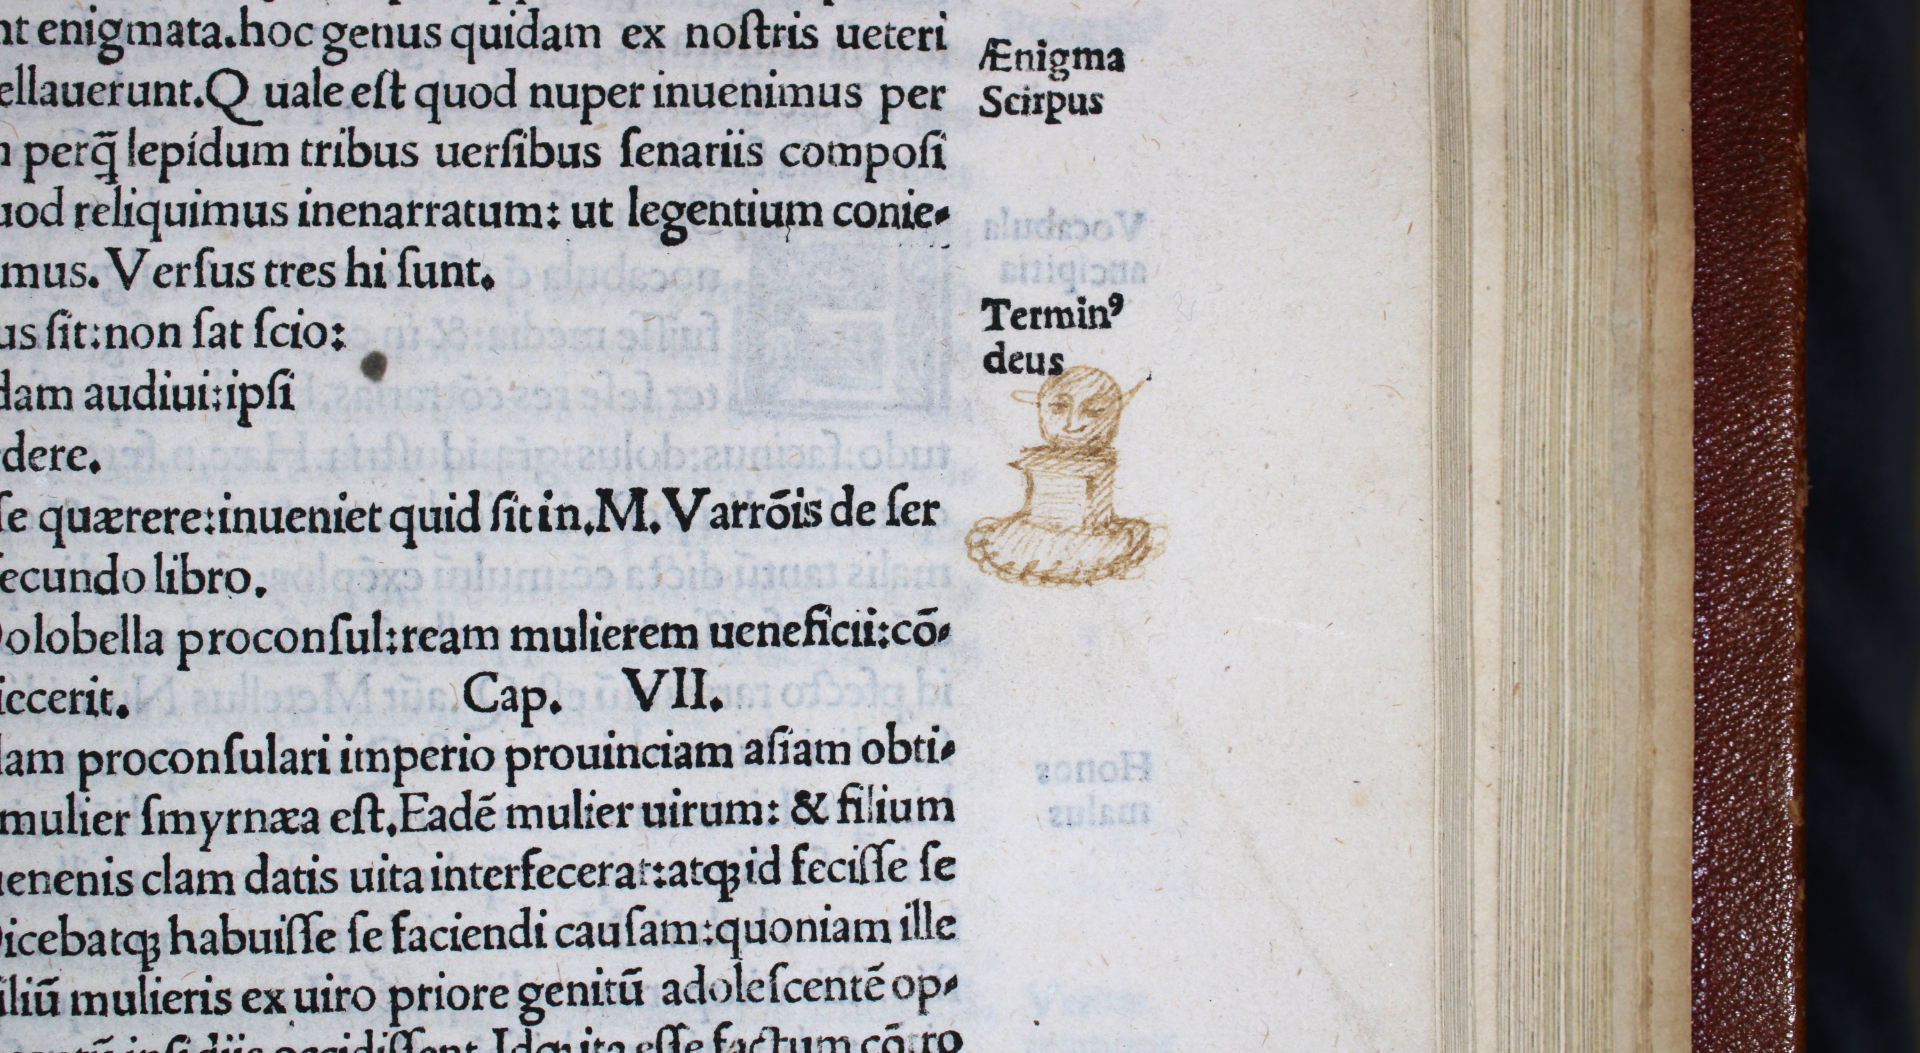 nt enigmata.hoc genus quidam ex noſtris ueteri
ellauerunt.Q uale eſt quod nuper inuenimus per
perq̃ lepídum tribus uerſibus ſenariis compoſi
uod reliquimus inenarratum: ut legentium conie-
mus. Verſus tres hi ſunt.
us ſit:non ſat ſcio:
dam audiui:ipſi
dere.
ſe quærere:inueniet quid ſit in.M. Varrõis de ſer
ſecundo libro.
olobella proconſul:ream mulierem ueneficii:cõ-
iccerit. Cap. VII.
lam proconſulari imperio prouinciam aſiam obti-
mulier ſmyrnæa eſt.Eadẽ mulier uirum: & filium
uenenis clam datis uita interfecerat:atqꝫ id feciſſe ſe
icebatqꝫ habuiſſe ſe faciendi cauſam:quoniam ille
iliũ mulieris ex uiro priore genitũ adoleſcentẽ op-
occidiſſent. Idqꝫ ita eſſe factum cõ.ro
Ænigma
Scirpus
Terminꝰ
deus